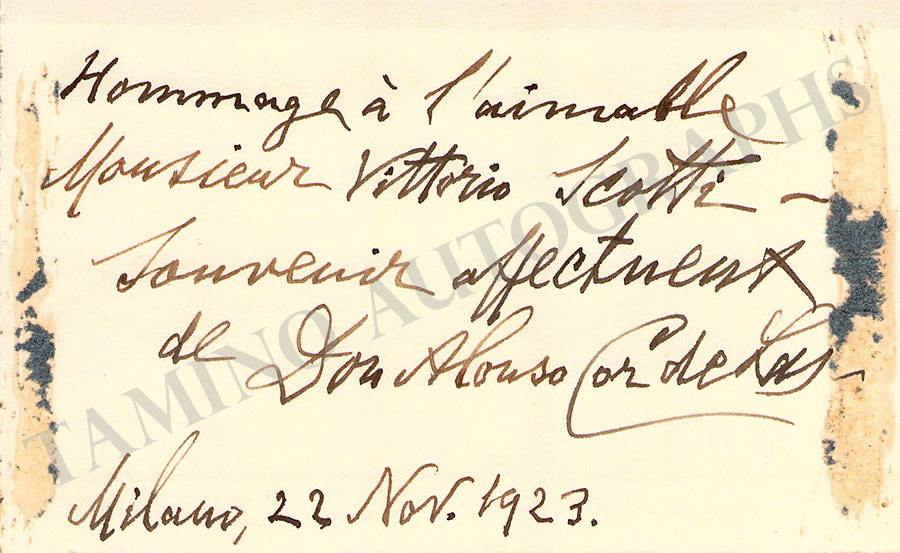 Hommage à l'aimable
Monsieur Vittorio Scotti –
Souvenir affectueux
de Don Alonso Cor de Las
Milano, 22 Nov. 1923.
TAMINO AUTOGRAPHS